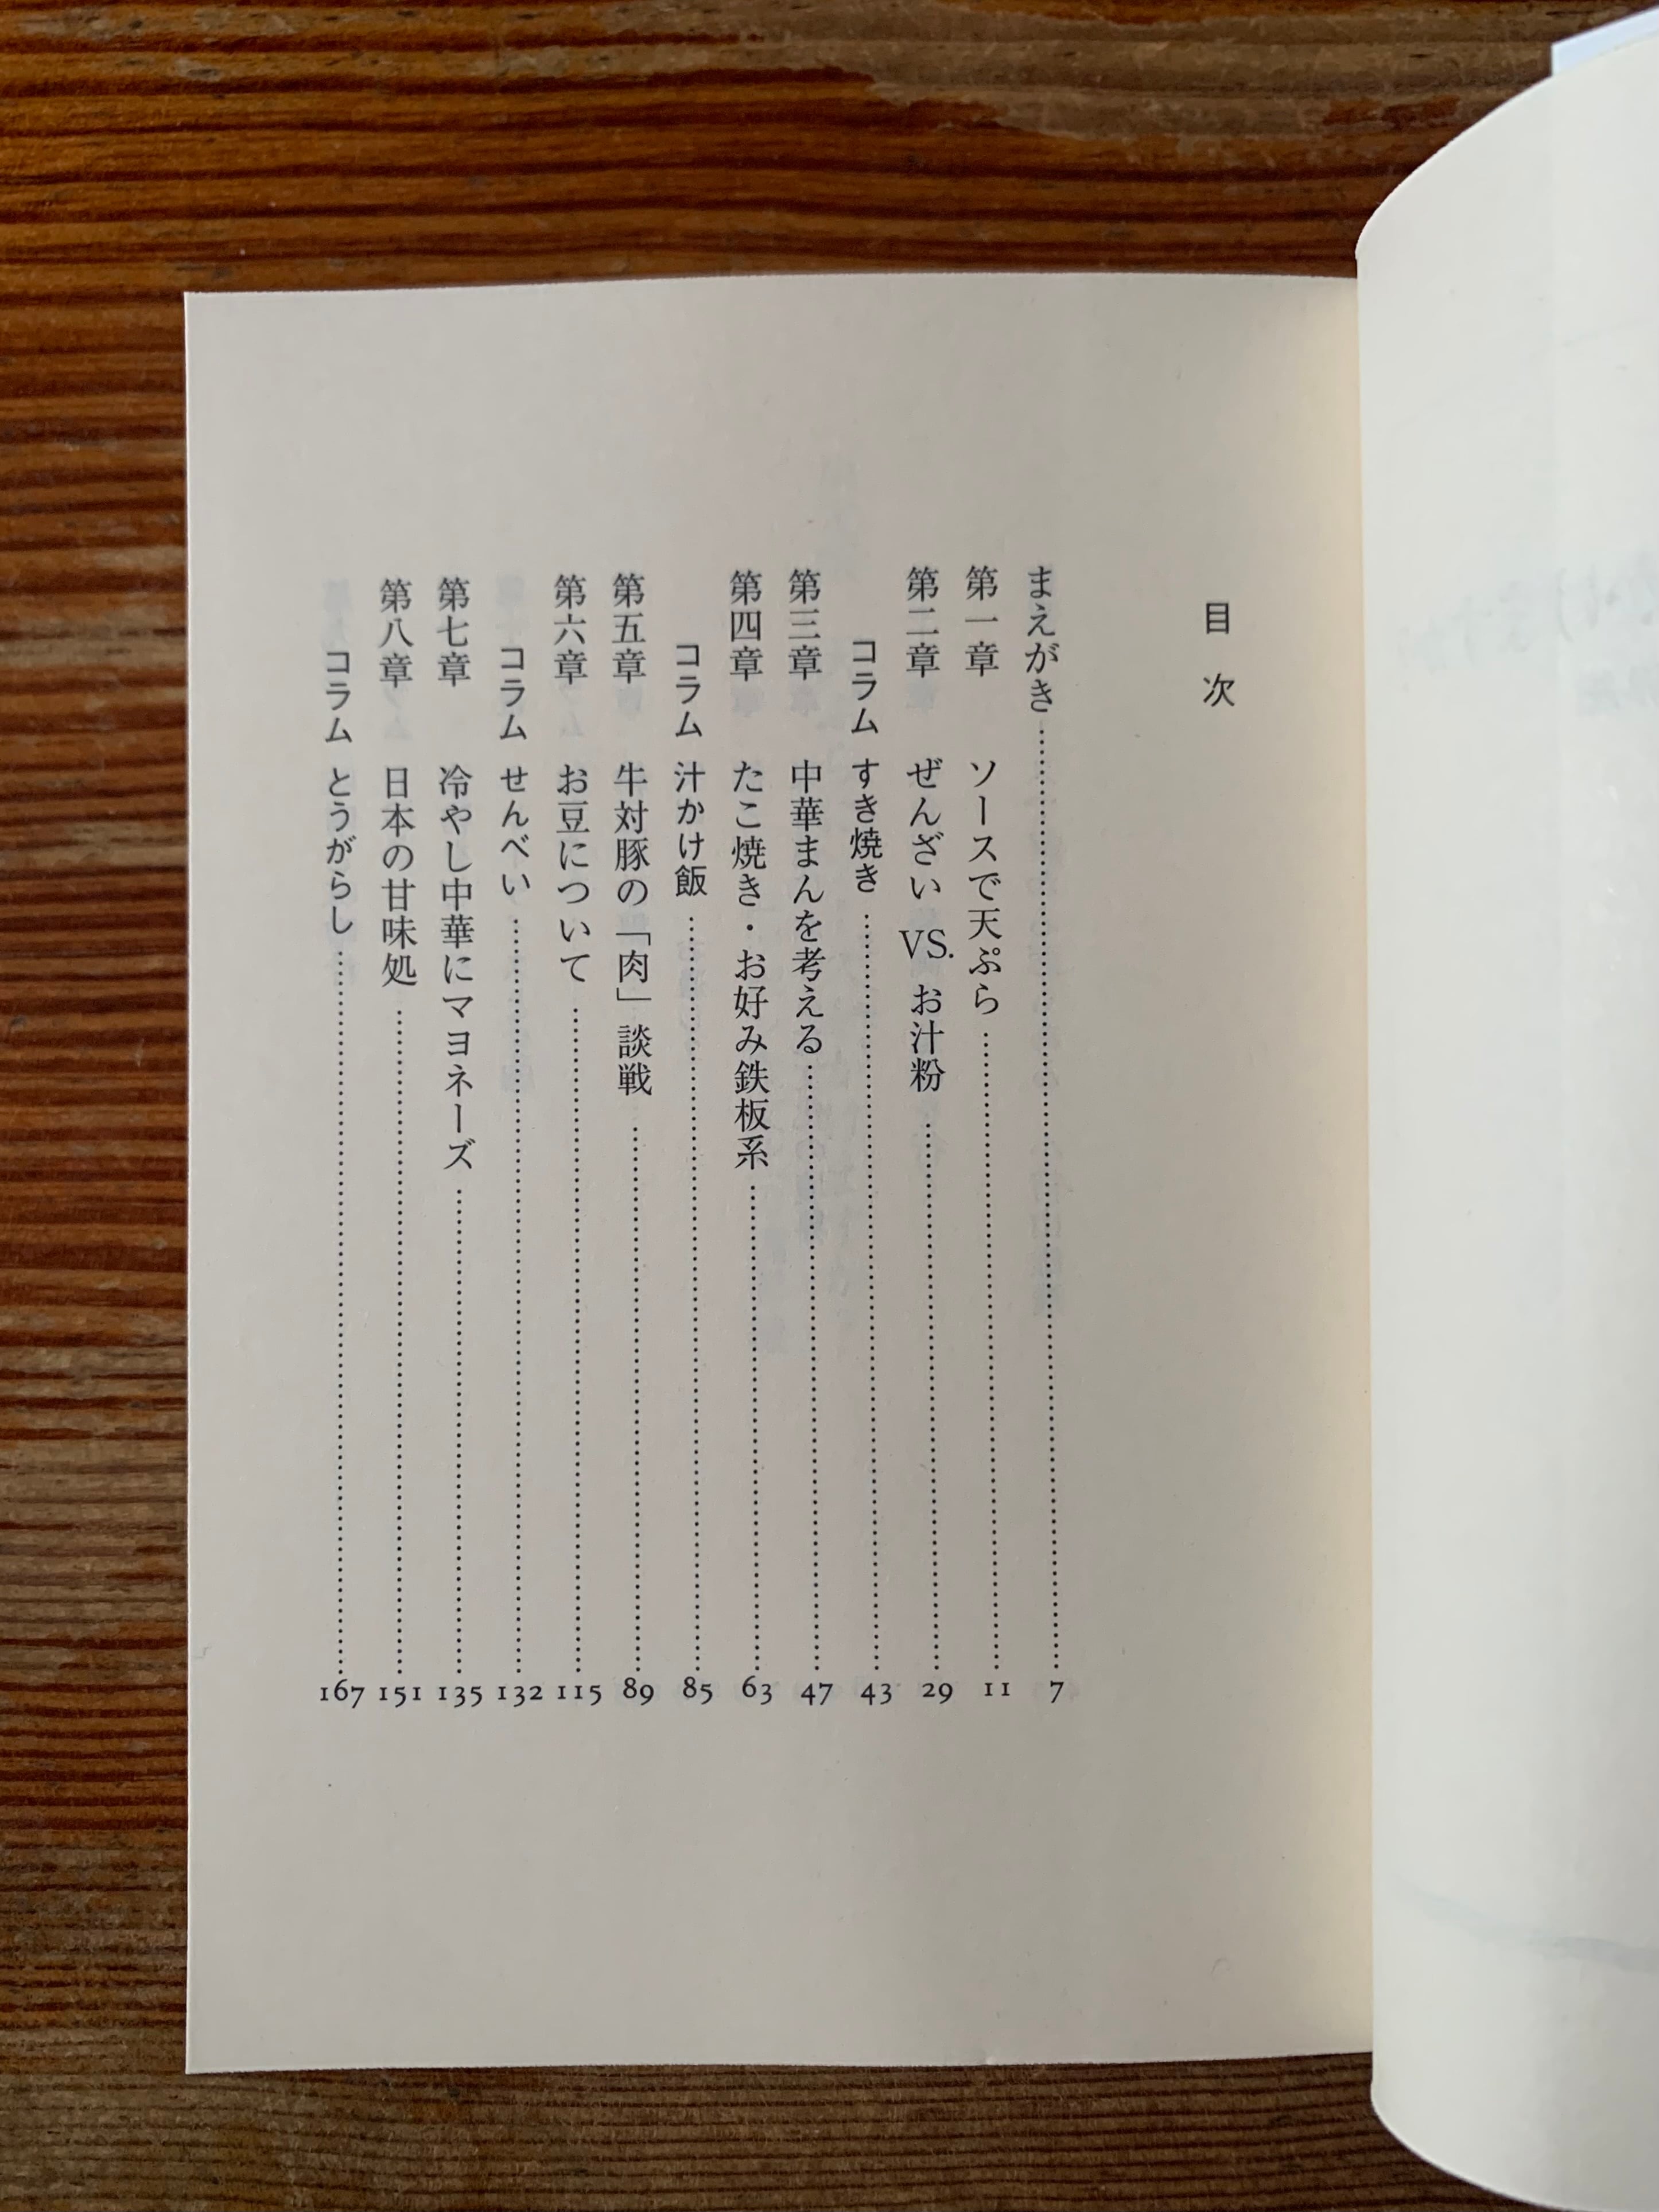 目次
まえがき……7
第一章 ソースで天ぷら……11
第二章 ぜんざい VS. お汁粉……29
コラム すき焼き……43
第三章 中華まんを考える……47
第四章 たこ焼き・お好み鉄板系……63
コラム 汁かけ飯……85
第五章 牛対豚の「肉」談戦……89
第六章 お豆について……115
コラム せんべい……132
第七章 冷やし中華にマヨネーズ……135
第八章 日本の甘味処……151
コラム とうがらし……167